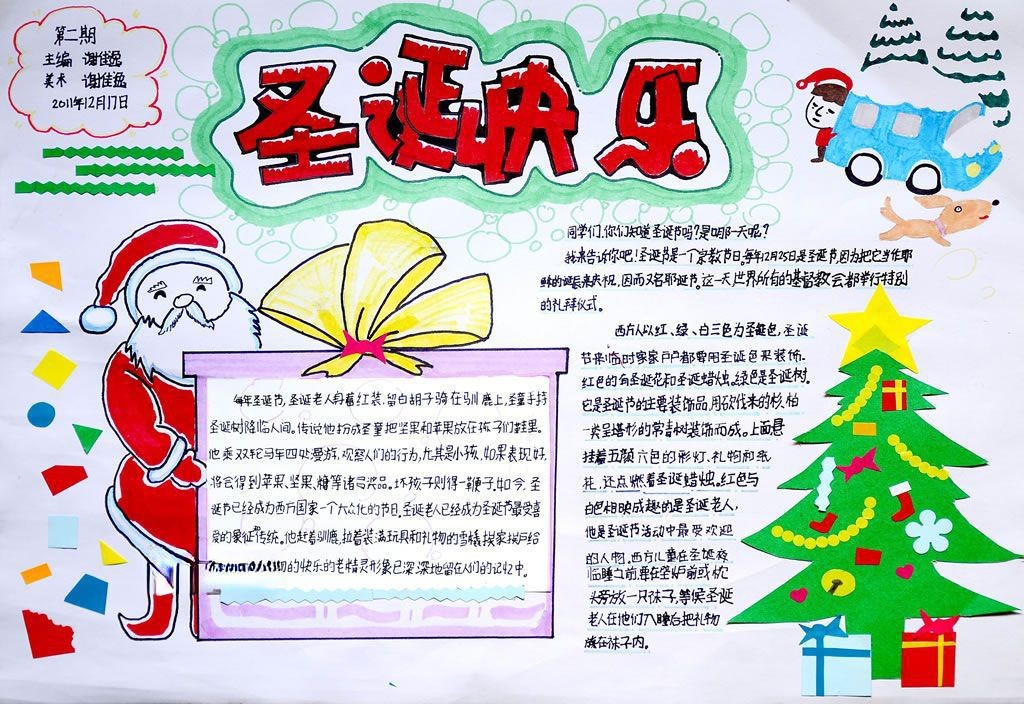 第二期
主编 谢佳逸
美术 谢佳逸
2011年12月17日
圣诞快乐
同学们,你们知道圣诞节吗?是哪一天呢?
我来告诉你吧!圣诞节是一个宗教节日,每年12月25日是圣诞节,因为把它当作耶
稣的诞辰来庆祝,因而又名耶诞节。这一天世界所有的基督教会都举行特别
的礼拜仪式。
西方人以红、绿、白三色为圣诞色,圣诞
节来临时家家户户都要用圣诞色来装饰。
红色的有圣诞花和圣诞蜡烛。绿色是圣诞树。
它是圣诞节的主要装饰品,用砍伐来的杉,柏
一类呈塔形的常青树装饰而成。上面悬
挂着五颜六色的彩灯、礼物和纸
花,还点燃着圣诞蜡烛。红色与
白色相映成趣的是圣诞老人,
他是圣诞节活动中最受欢迎
的人物。西方儿童在圣诞夜
临睡之前,要在壁炉前或枕
头旁放一只袜子,等候圣诞
老人在他们入睡后把礼物
放在袜子内。
每年圣诞节,圣诞老人身着红装,留白胡子骑在驯鹿上,圣童手持
圣诞树降临人间。传说他扮成圣童把坚果和苹果放在孩子们鞋里。
他乘双轮马车四处漫游,观察人们的行为,尤其是小孩,如果表现好,
将会得到苹果、坚果、糖等诸多奖品。坏孩子则得一鞭子。如今,圣
诞节已经成为西方国家一个大众化的节日,圣诞老人已经成为圣诞节最受喜
爱的象征传统。他赶着驯鹿,拉着装满玩具和礼物的雪橇挨家挨户给
物的快乐的老精灵形象已深深地留在人们的记忆中。